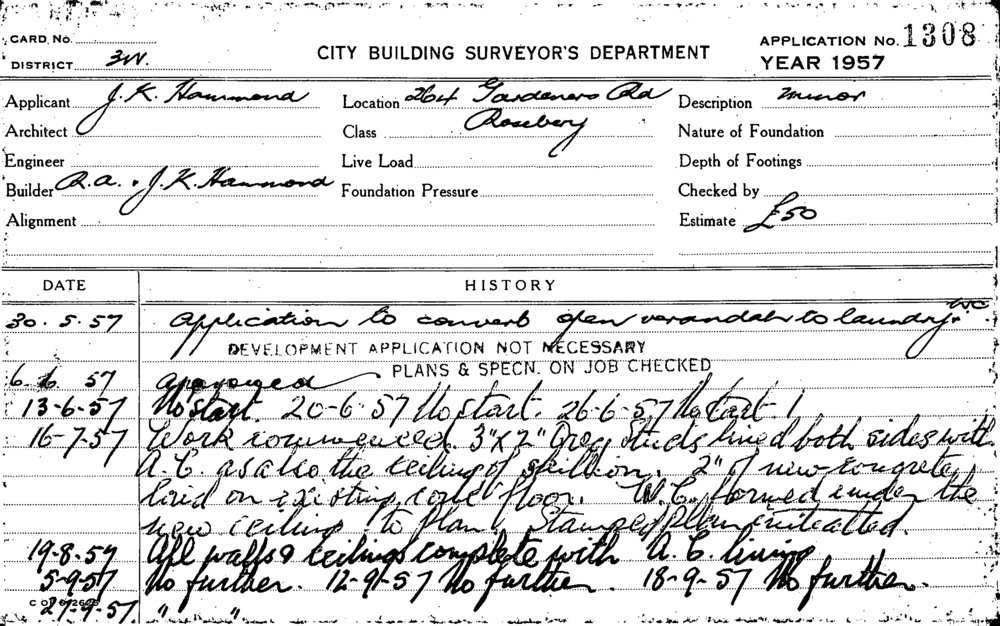 CARD. No.
DISTRICT 3W.
CITY BUILDING SURVEYOR'S DEPARTMENT
APPLICATION No. 1308
YEAR 1957
Applicant J. K. Hammond
Location 264 Gardeners Rd
Rosebery
Description minor
Architect
Class
Nature of Foundation
Engineer
Live Load
Depth of Footings
Builder R.A. & J. K. Hammond
Foundation Pressure
Checked by
Alignment
Estimate £50
DATE HISTORY
30. 5. 57 Application to convert open verandah to laundry & WC.
DEVELOPMENT APPLICATION NOT NECESSARY
PLANS & SPECN. ON JOB CHECKED
6. 6. 57 Approved
13-6-57 No start. 20-6-57 No start. 26-6-57 No start
16-7-57 Work commenced 3"x2" Oreg Studs lined both sides with
A.C. as also the ceiling of skillion. 2" of new concrete
laid on existing conc floor. W.C. formed under the
new ceiling to plan. Stamped plan
19-8-57 All walls & ceilings complete with A.C. lining
5-9-57 No further. 12-9-57 No further. 18-9-57 No further.
27-9-57 " "